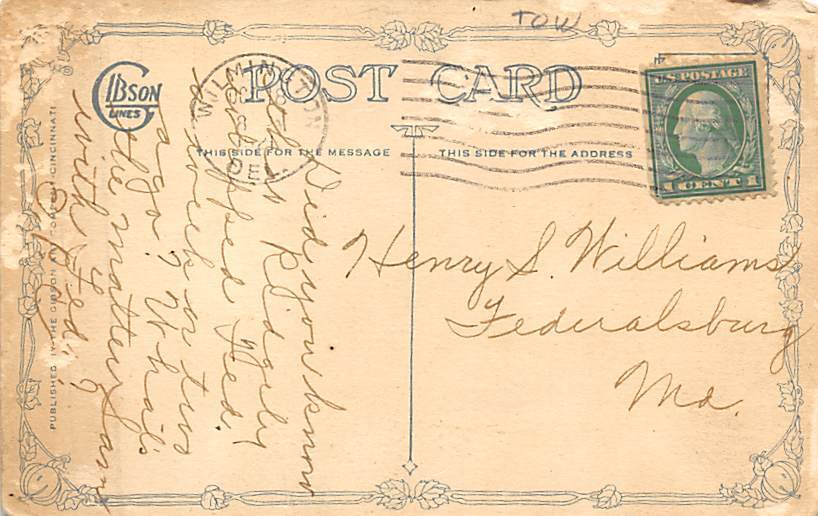 TOW
POST CARD
GIBSON
LINES
WILMINGTON
DEL.
U.S. POSTAGE
1 CENT 1
THIS SIDE FOR THE MESSAGE
THIS SIDE FOR THE ADDRESS
Did you know
Ridgely
Fed.
a week or two
ago? What's
the matter
with Fed.?
Henry S. Williams
Federalsburg
Md.
PUBLISHED BY THE GIBSON ART CO. CINCINNATI